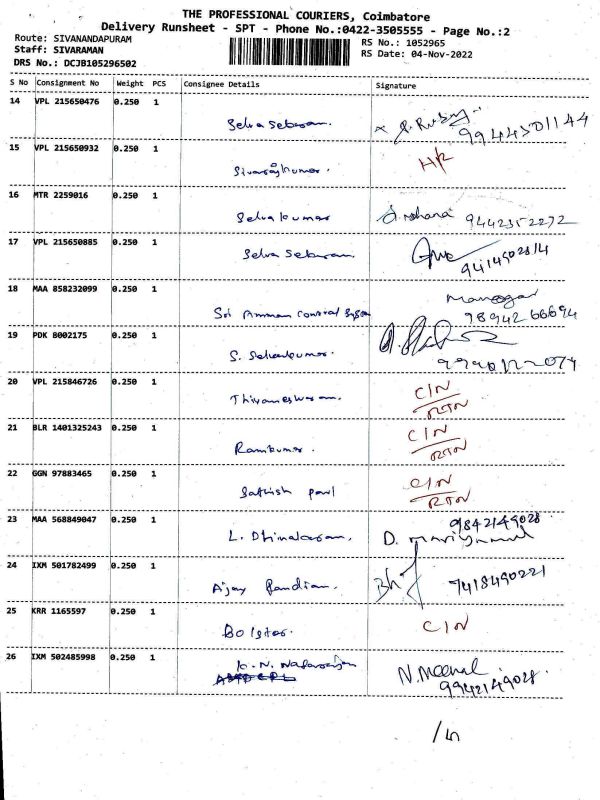 THE PROFESSIONAL COURIERS, Coimbatore
Delivery Runsheet - SPT - Phone No.:0422-3505555 - Page No.:2
Route: SIVANANDAPURAM RS No.: 1052965
Staff: SIVARAMAN RS Date: 04-Nov-2022
DRS No.: DCJB105296502
S No Consignment No Weight PCS Consignee Details Signature
14 VPL 215650476 0.250 1
Selva Sebaram. x 9944501144
15 VPL 215650932 0.250 1 HR
Sivarajkumar.
16 MTR 2259016 0.250 1
Selva kumar 9442352272
17 VPL 215650885 0.250 1
Selva Sebaram. 9414902814
18 MAA 858232099 0.250 1
Sri Amman 98942 66694
19 PDK 8002175 0.250 1
S.
20 VPL 215846726 0.250 1 C/N
RTN
21 BLR 1401325243 0.250 1 C/N
Ramkumar. RTN
22 GGN 97883465 0.250 1 C/N
Sathish paul RTN
23 MAA 568849047 0.250 1 9842149028
L. Dhinakaran. D.
24 IXM 501782499 0.250 1
Ajay Pandian. 7418490221
25 KRR 1165597 0.250 1 C/N
Bolster.
26 IXM 502485998 0.250 1 K. N. Natarajan N. Meenal
9942149028